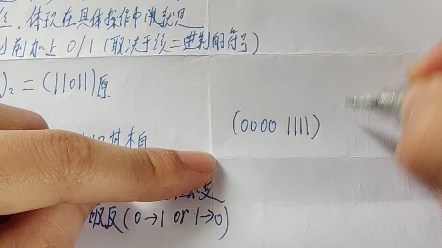 体现在具体操作中做就是
前加上0/1(取决于该二进制的符号)
)₂=(11011)原
(0000 1111)
取反(0→1 or 1→0)